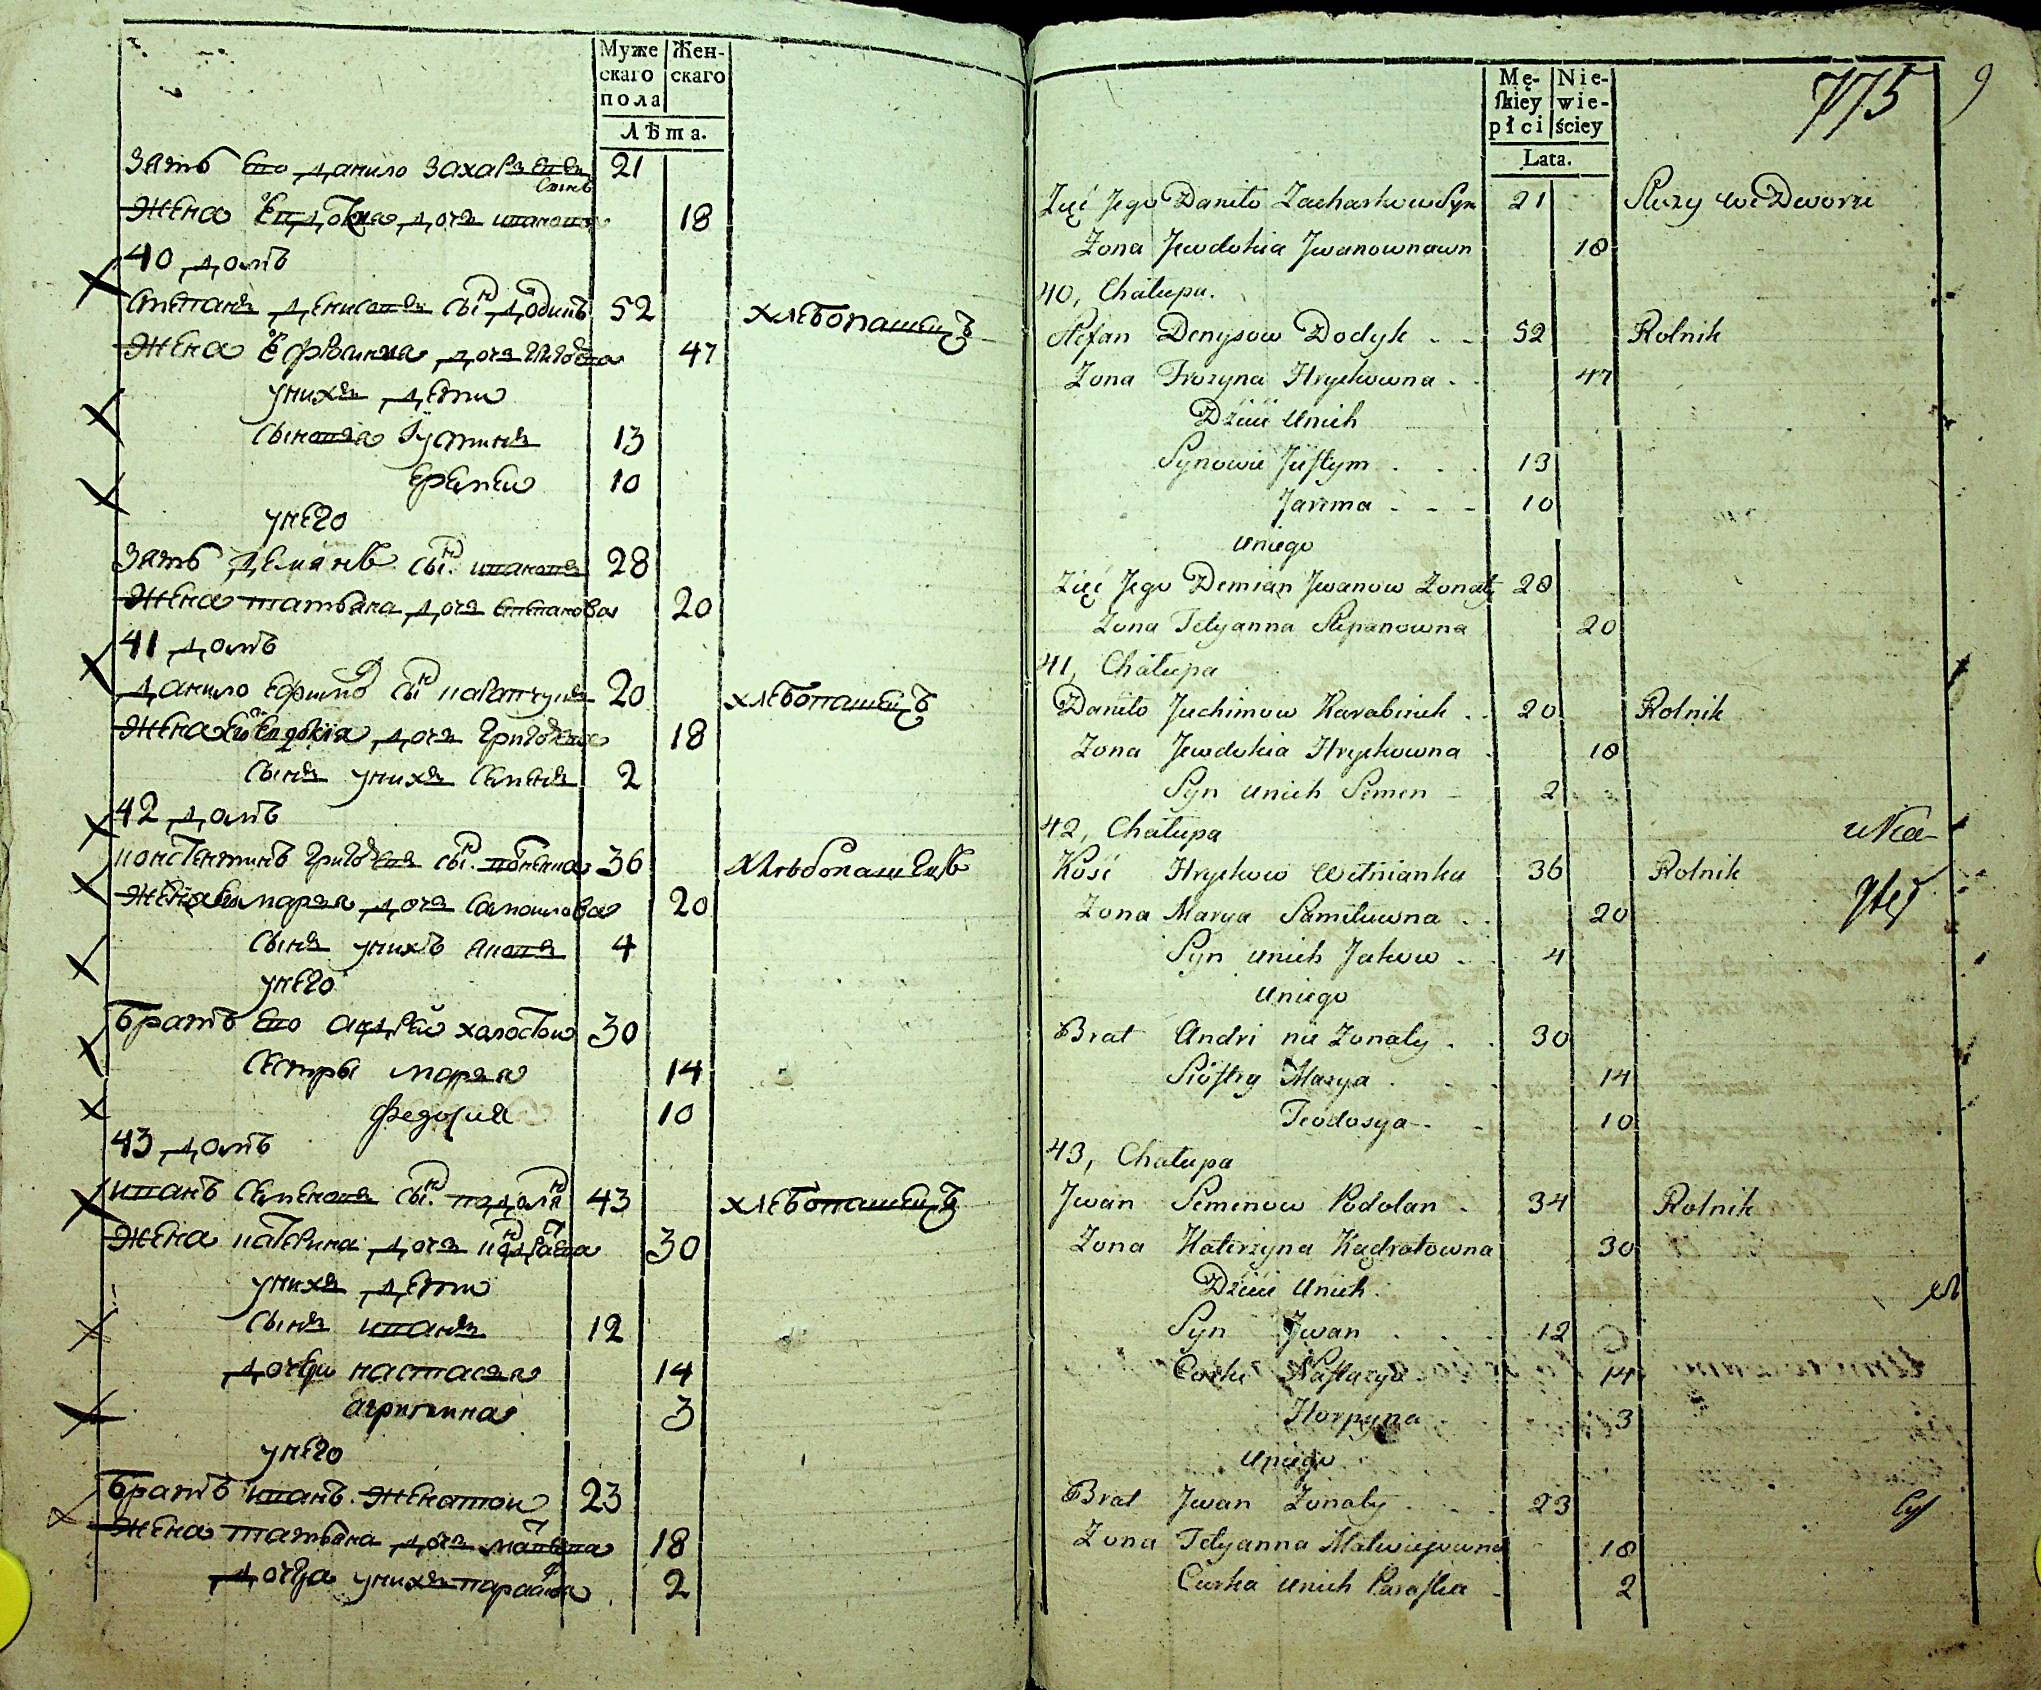 Муже Жен-
скаго скаго
пола
Лѣта.
Зять Его Данило Захаровъ Сынъ 21
Жена Евдокия дочь Иванова 18
40 домъ
Степанъ Денисовъ сынъ Додикъ 52 хлебопашецъ
Жена Ефросиния дочь Григорова 47
у нихъ дети
Сыновья Густинъ 13
Еремеи 10
у него
Зять Демянъ сын. Ивановъ 28
Жена Татьяна дочь Степанова 20
41 домъ
Данило Ефимов сын Карапчукъ 20 хлебопашецъ
Жена Евдокія дочь Григорева 18
Сынъ у нихъ Семенъ 2
42 домъ
Констентинъ Григоревъ сын. 36 Хлѣбопашецъ
Жена марья дочь Самоилова 20
Сынъ у нихъ Яковъ 4
у него
Братъ Его Андрей холостои 30
Сестры марья 14
Федосия 10
43 домъ
Иванъ Семеновъ сын. подолян 43 хлебопашецъ
Жена катерина дочь кондратева 30
у нихъ дети
Сынъ Иванъ 12
дочери настасья 14
Агрипина 3
у него
Братъ Иванъ Женатои 23
Жена татьяна дочь матвева 18
дочь у нихъ параска 2
775 9
Mę- Nie-
skiey wie-
płci ściey
Lata.
Zięć Jego Daniło Zacharkow Syn 21 Służy we Dworze
Zona Jewdokia Jwanownawn 18
40, Chałupa.
Stefan Denysow Dodyk 52 Rolnik
Zona Frozyna Hryckowna 47
Dzieci unich
Synowie Justym 13
Jarema 10
uniego
Zięć Jego Demian Jwanow Zonaty 28
Zona Tetyanna Stepanowna 20
41, Chałupa
Daniło Juchimow Karabinik 20 Rolnik
Zona Jewdokia Hryckowna 18
Syn unich Semen 2
42, Chałupa
Kość Hryckow Wiśnianka 36 Rolnik
Zona Marya Samiluwna 20
Syn unich Jakow 4
uniego
Brat Andri nie Zonaty 30
Siostry Marya 14
Teodosya 10
43, Chałupa
Jwan Semenow Podolan 34 Rolnik
Zona Katerzyna Kądratowna 30
Dzieci unich
Syn Jwan 12
Corki Nastazya 14
Horpyna 3
uniego
Brat Jwan Zonaty 23
Zona Tetyanna Matwiejowna 18
Curka unich Paraska 2